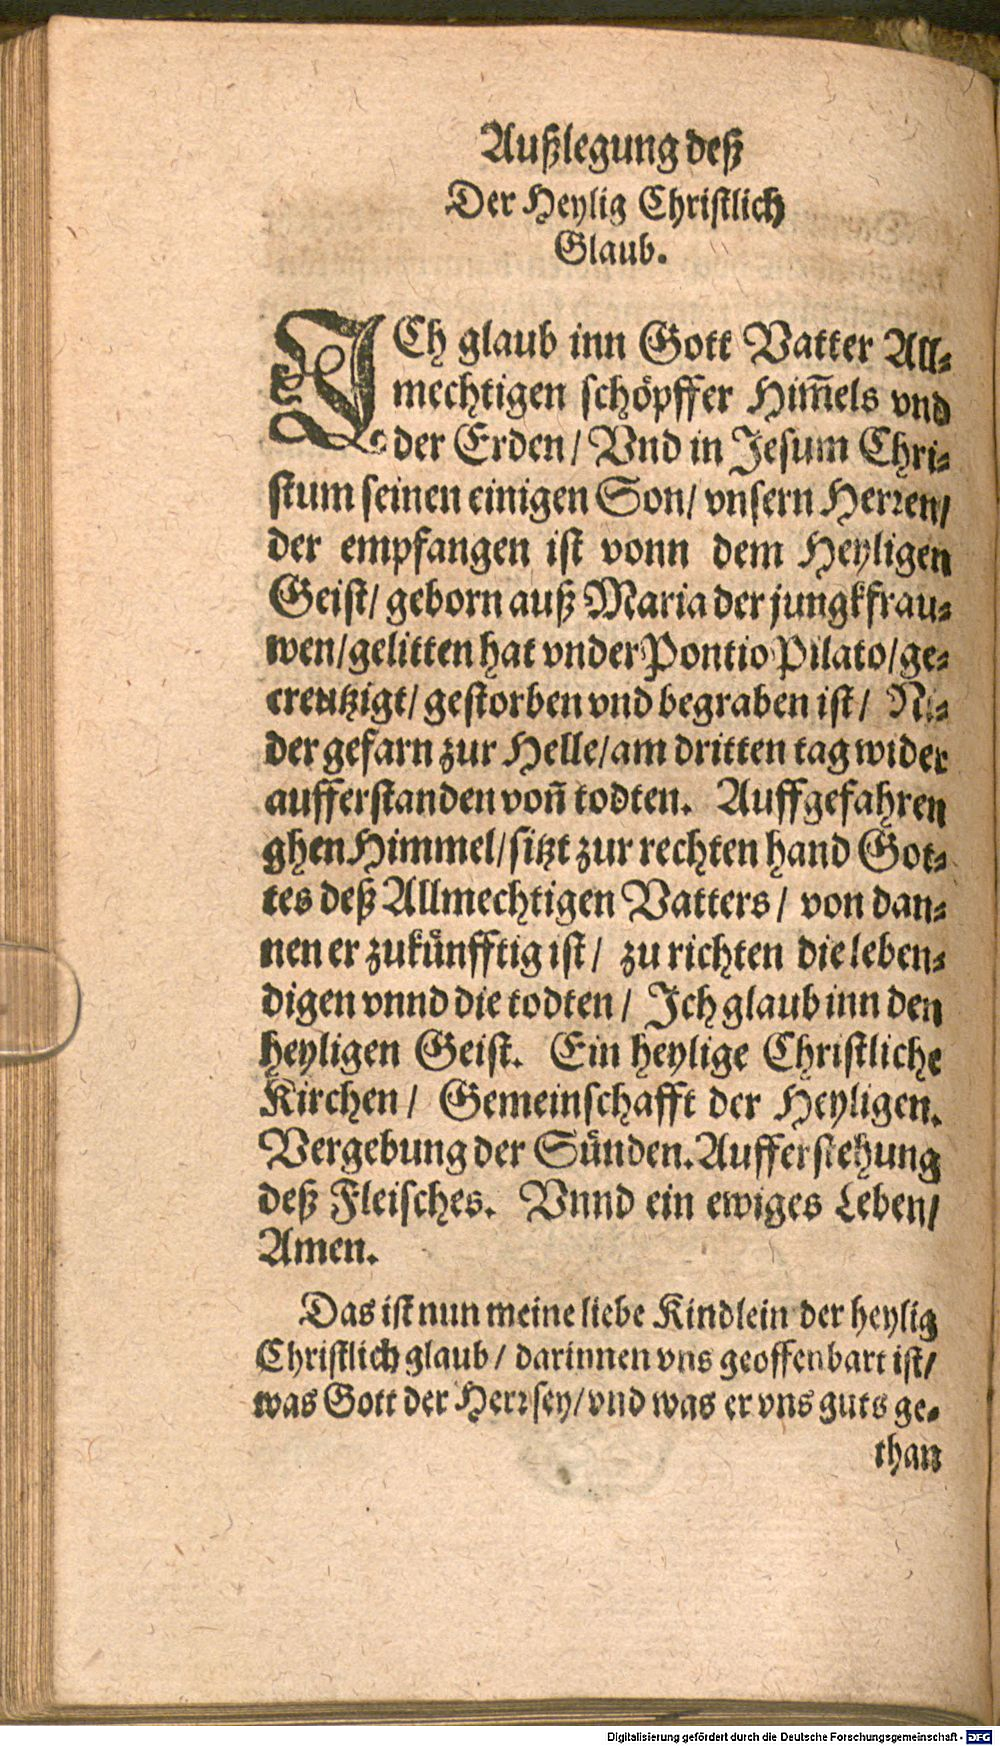 Außlegung deß
Der Heylig Christlich
Glaub.
ICh glaub inn Gott Vatter All⸗
mechtigen schöpffer Him̃els vnd
der Erden/ Vnd in Jesum Chri⸗
stum seinen einigen Son/ vnsern Herren/
der empfangen ist vonn dem Heyligen
Geist/ geborn auß Maria der jungkfrau⸗
wen/ gelitten hat vnder Pontio Pilato/ ge⸗
creutzigt/ gestorben vnd begraben ist/ Ni⸗
der gefarn zur Helle/ am dritten tag wider
aufferstanden von̄ todten. Auffgefahren
ghen Himmel/ sitzt zur rechten hand Got⸗
tes deß Allmechtigen Vatters/ von dan⸗
nen er zukünfftig ist/ zu richten die leben⸗
digen vnnd die todten/ Jch glaub inn den
heyligen Geist. Ein heylige Christliche
Kirchen/ Gemeinschafft der Heyligen.
Vergebung der Sünden. Aufferstehung
deß Fleisches. Vnnd ein ewiges Leben/
Amen.
Das ist nun meine liebe Kindlein der heylig
Christlich glaub/ darinnen vns geoffenbart ist/
was Gott der Herr sey/ vnd was er vns guts ge⸗
than
Digitalisierung gefördert durch die Deutsche Forschungsgemeinschaft - DFG